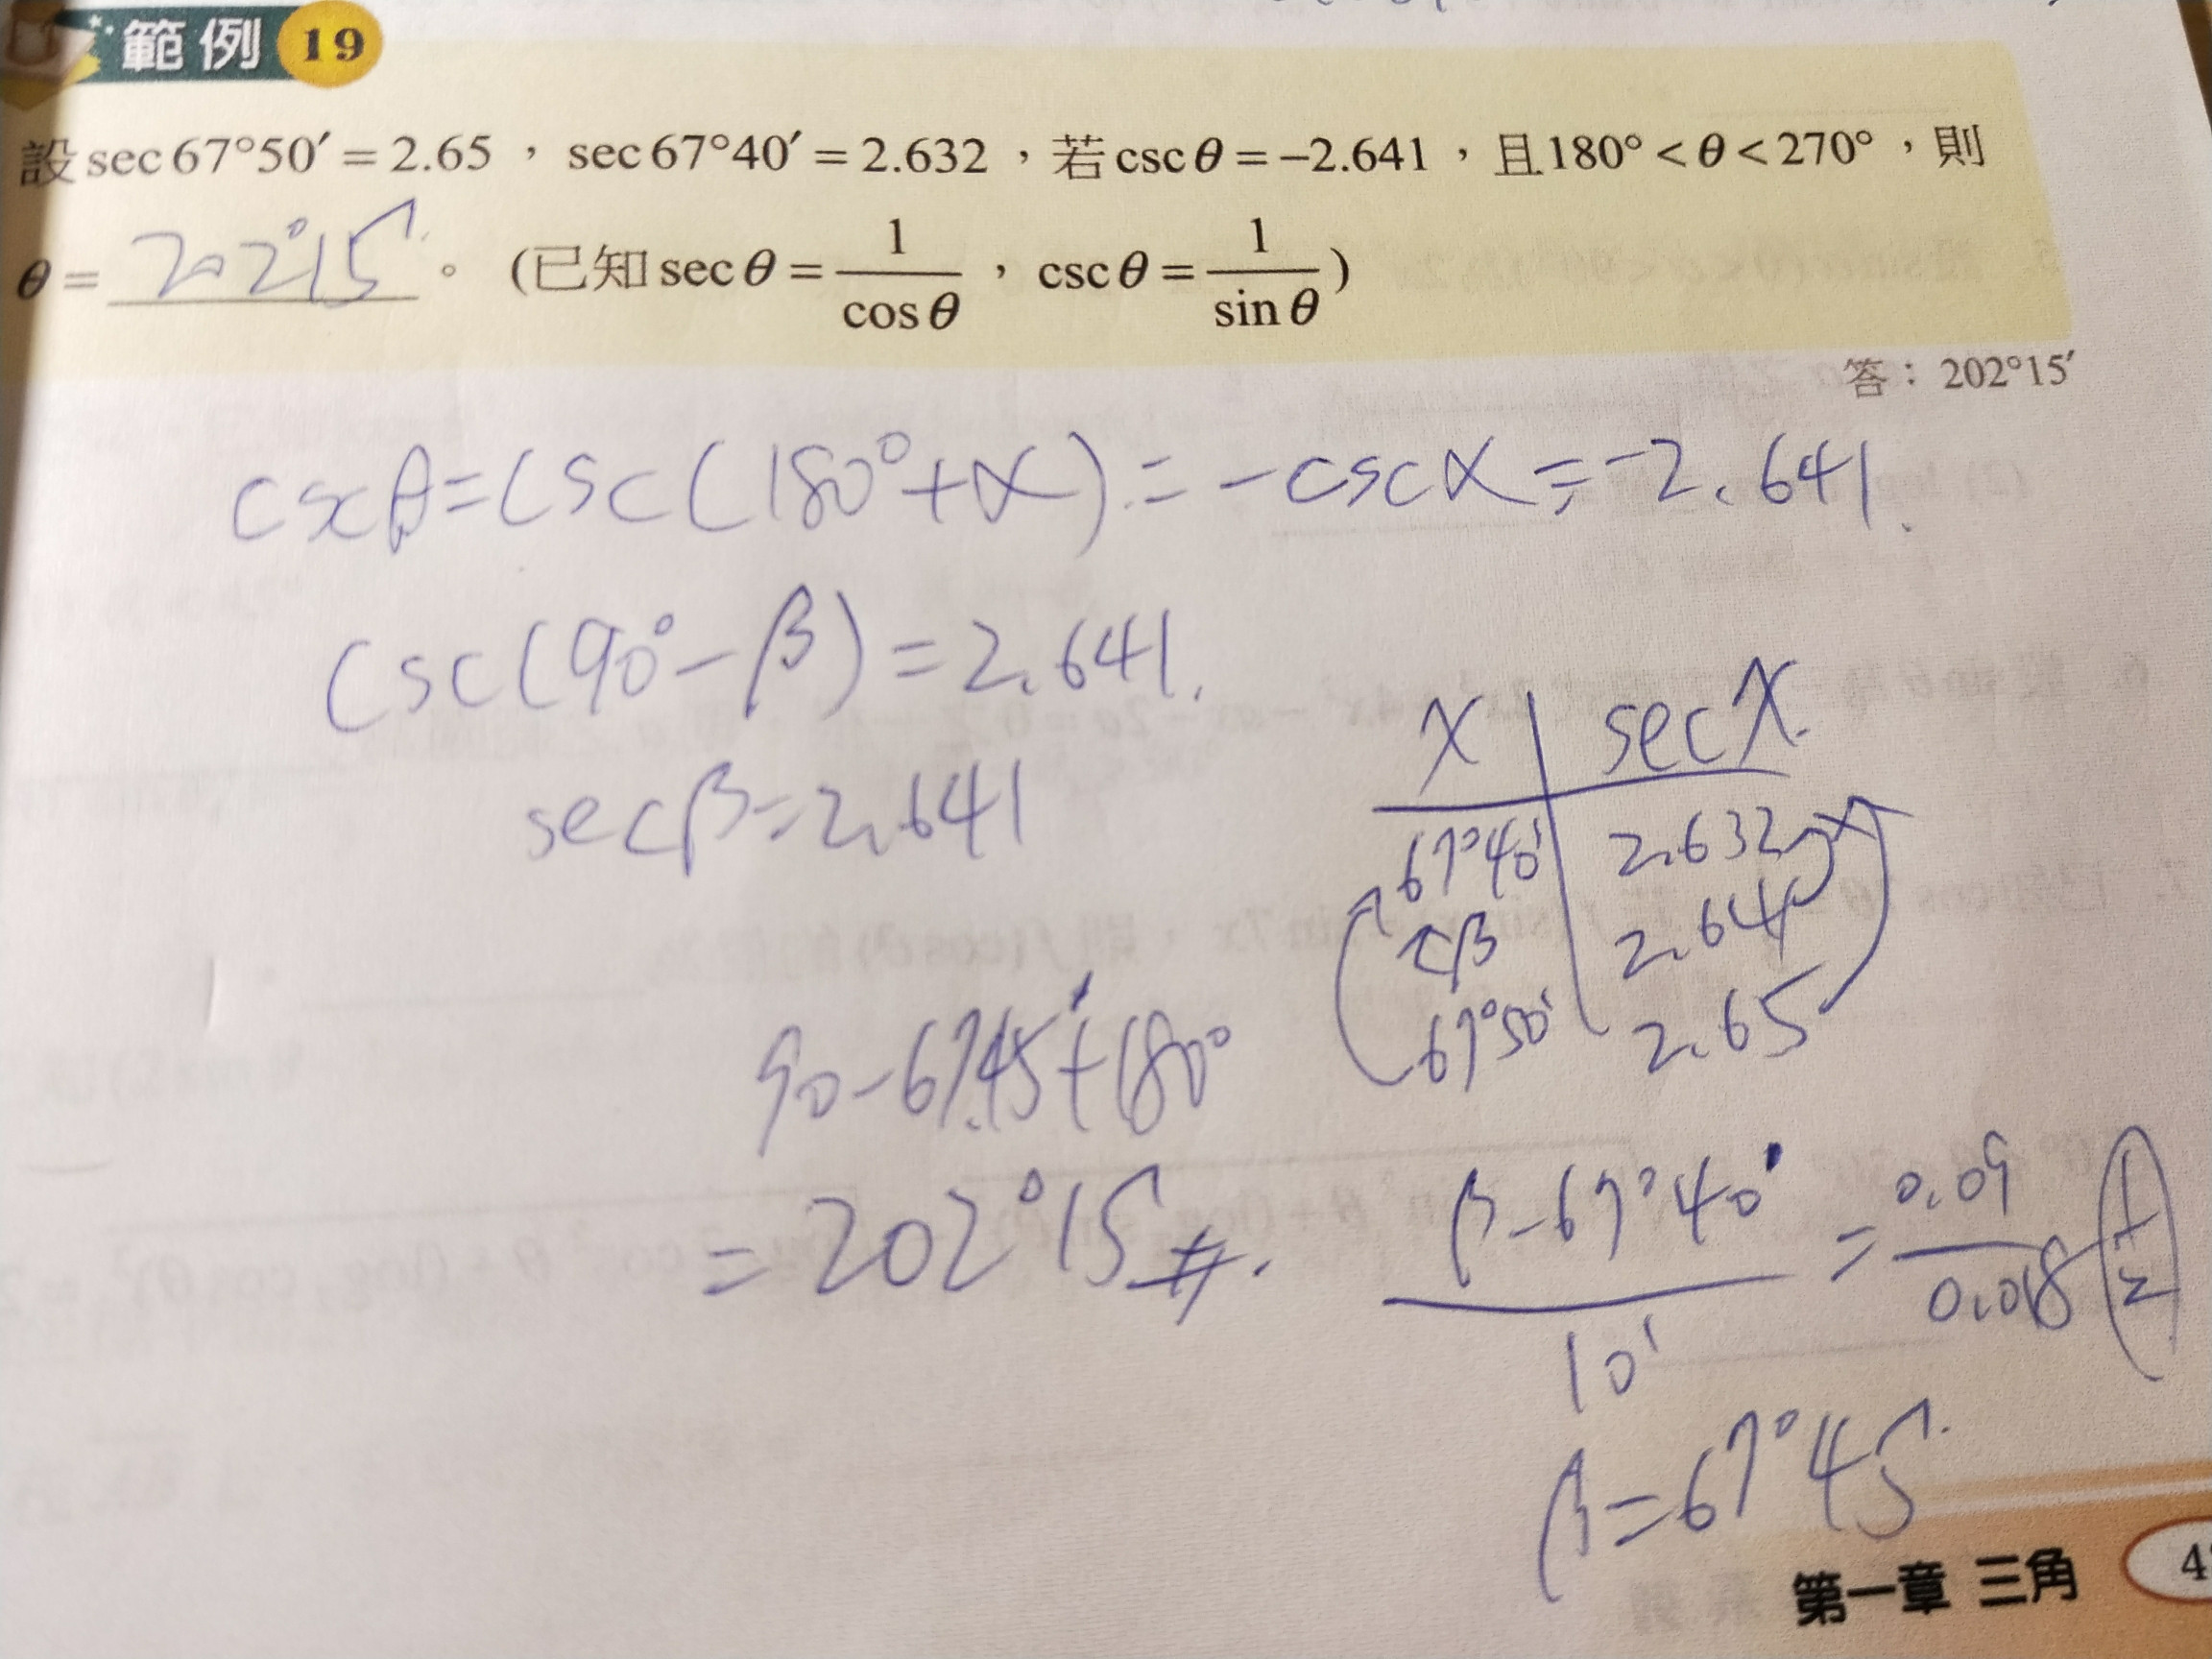 範例 19
設 sec 67°50′ = 2.65 ， sec 67°40′ = 2.632 ，若 csc θ = −2.641 ，且 180° < θ < 270° ，則
θ = 202°15′ 。 (已知 sec θ = 1/cos θ ， csc θ = 1/sin θ )
答： 202°15′
csc θ = csc(180°+α) = −csc α = −2.641
csc(90°−β) = 2.641
sec β = 2.641
x | sec x
67°40′ 2.632
β 2.641
67°50′ 2.65
90−67°45′+180°
= 202°15′ #
β−67°40′ / 10′ = 0.09 / 0.018 (1/2)
β = 67°45′
第一章 三角